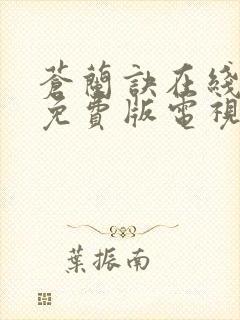 蒼蘭訣在綫
免費版電視
葉振南